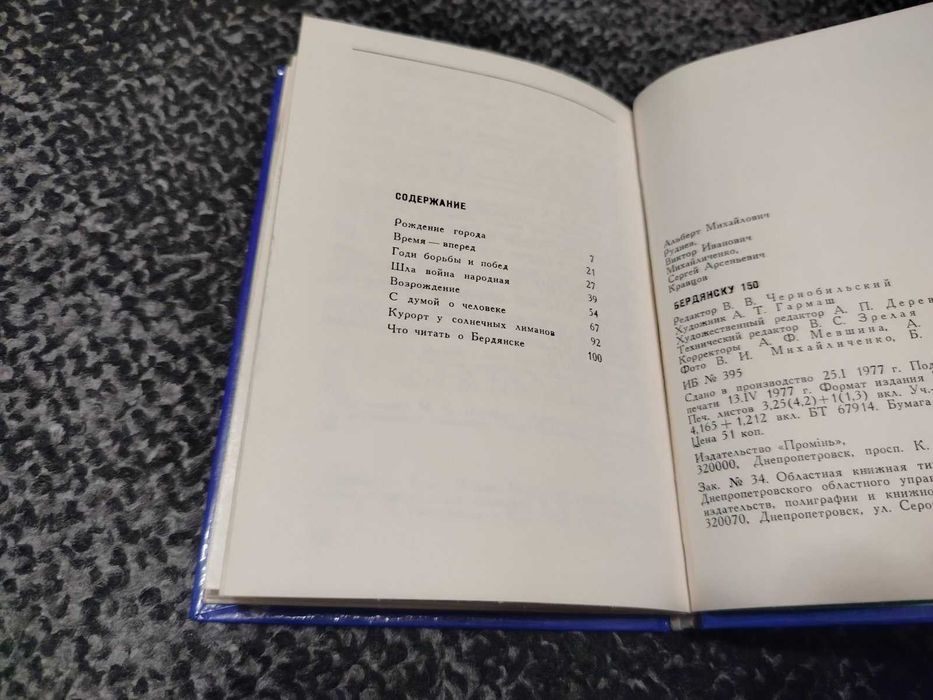 СОДЕРЖАНИЕ
Рождение города 7
Время — вперед 21
Годи борьбы и побед 27
Шла война народная 39
Возрождение 54
С думой о человеке 67
Курорт у солнечных лиманов 92
Что читать о Бердянске 100
Альберт Михайлович
Руднев,
Виктор Иванович
Михайличенко,
Сергей Арсеньевич
Кравцов
БЕРДЯНСКУ 150
Редактор В. В. Чернобильский
Художник А. Т. Гармаш
Художественный редактор А. П. Дерев
Технический редактор В. С. Зрелая
Корректоры А. Ф. Мевшина, А.
Фото В. И. Михайличенко, Б.
ИБ № 395
Сдано в производство 25.I 1977 г. Под
печати 13.IV 1977 г. Формат издания
Печ. листов 3,25(4,2)+1(1,3) вкл. Уч.-
4,165+1,212 вкл. БТ 67914. Бумага
Цена 51 коп.
Издательство «Промінь»,
320000, Днепропетровск, просп. К.
Зак. № 34. Областная книжная ти
Днепропетровского областного управ
издательств, полиграфии и книжно
320070, Днепропетровск, ул. Серо